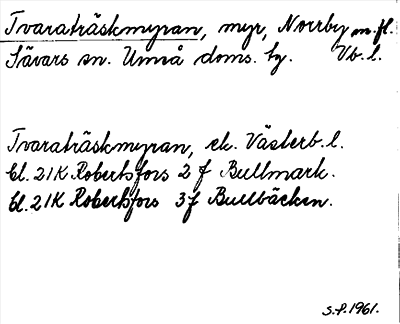 Tvaraträskmyran, myr, Norrby m.fl.
Sävars sn. Umeå doms. tg. Vb. l.
Tvaraträskmyran, ek. Västerb. l.
bl. 21K Robertsfors 2 f Bullmark.
bl. 21K Robertsfors 3f Bullbäcken.
S.P. 1961.